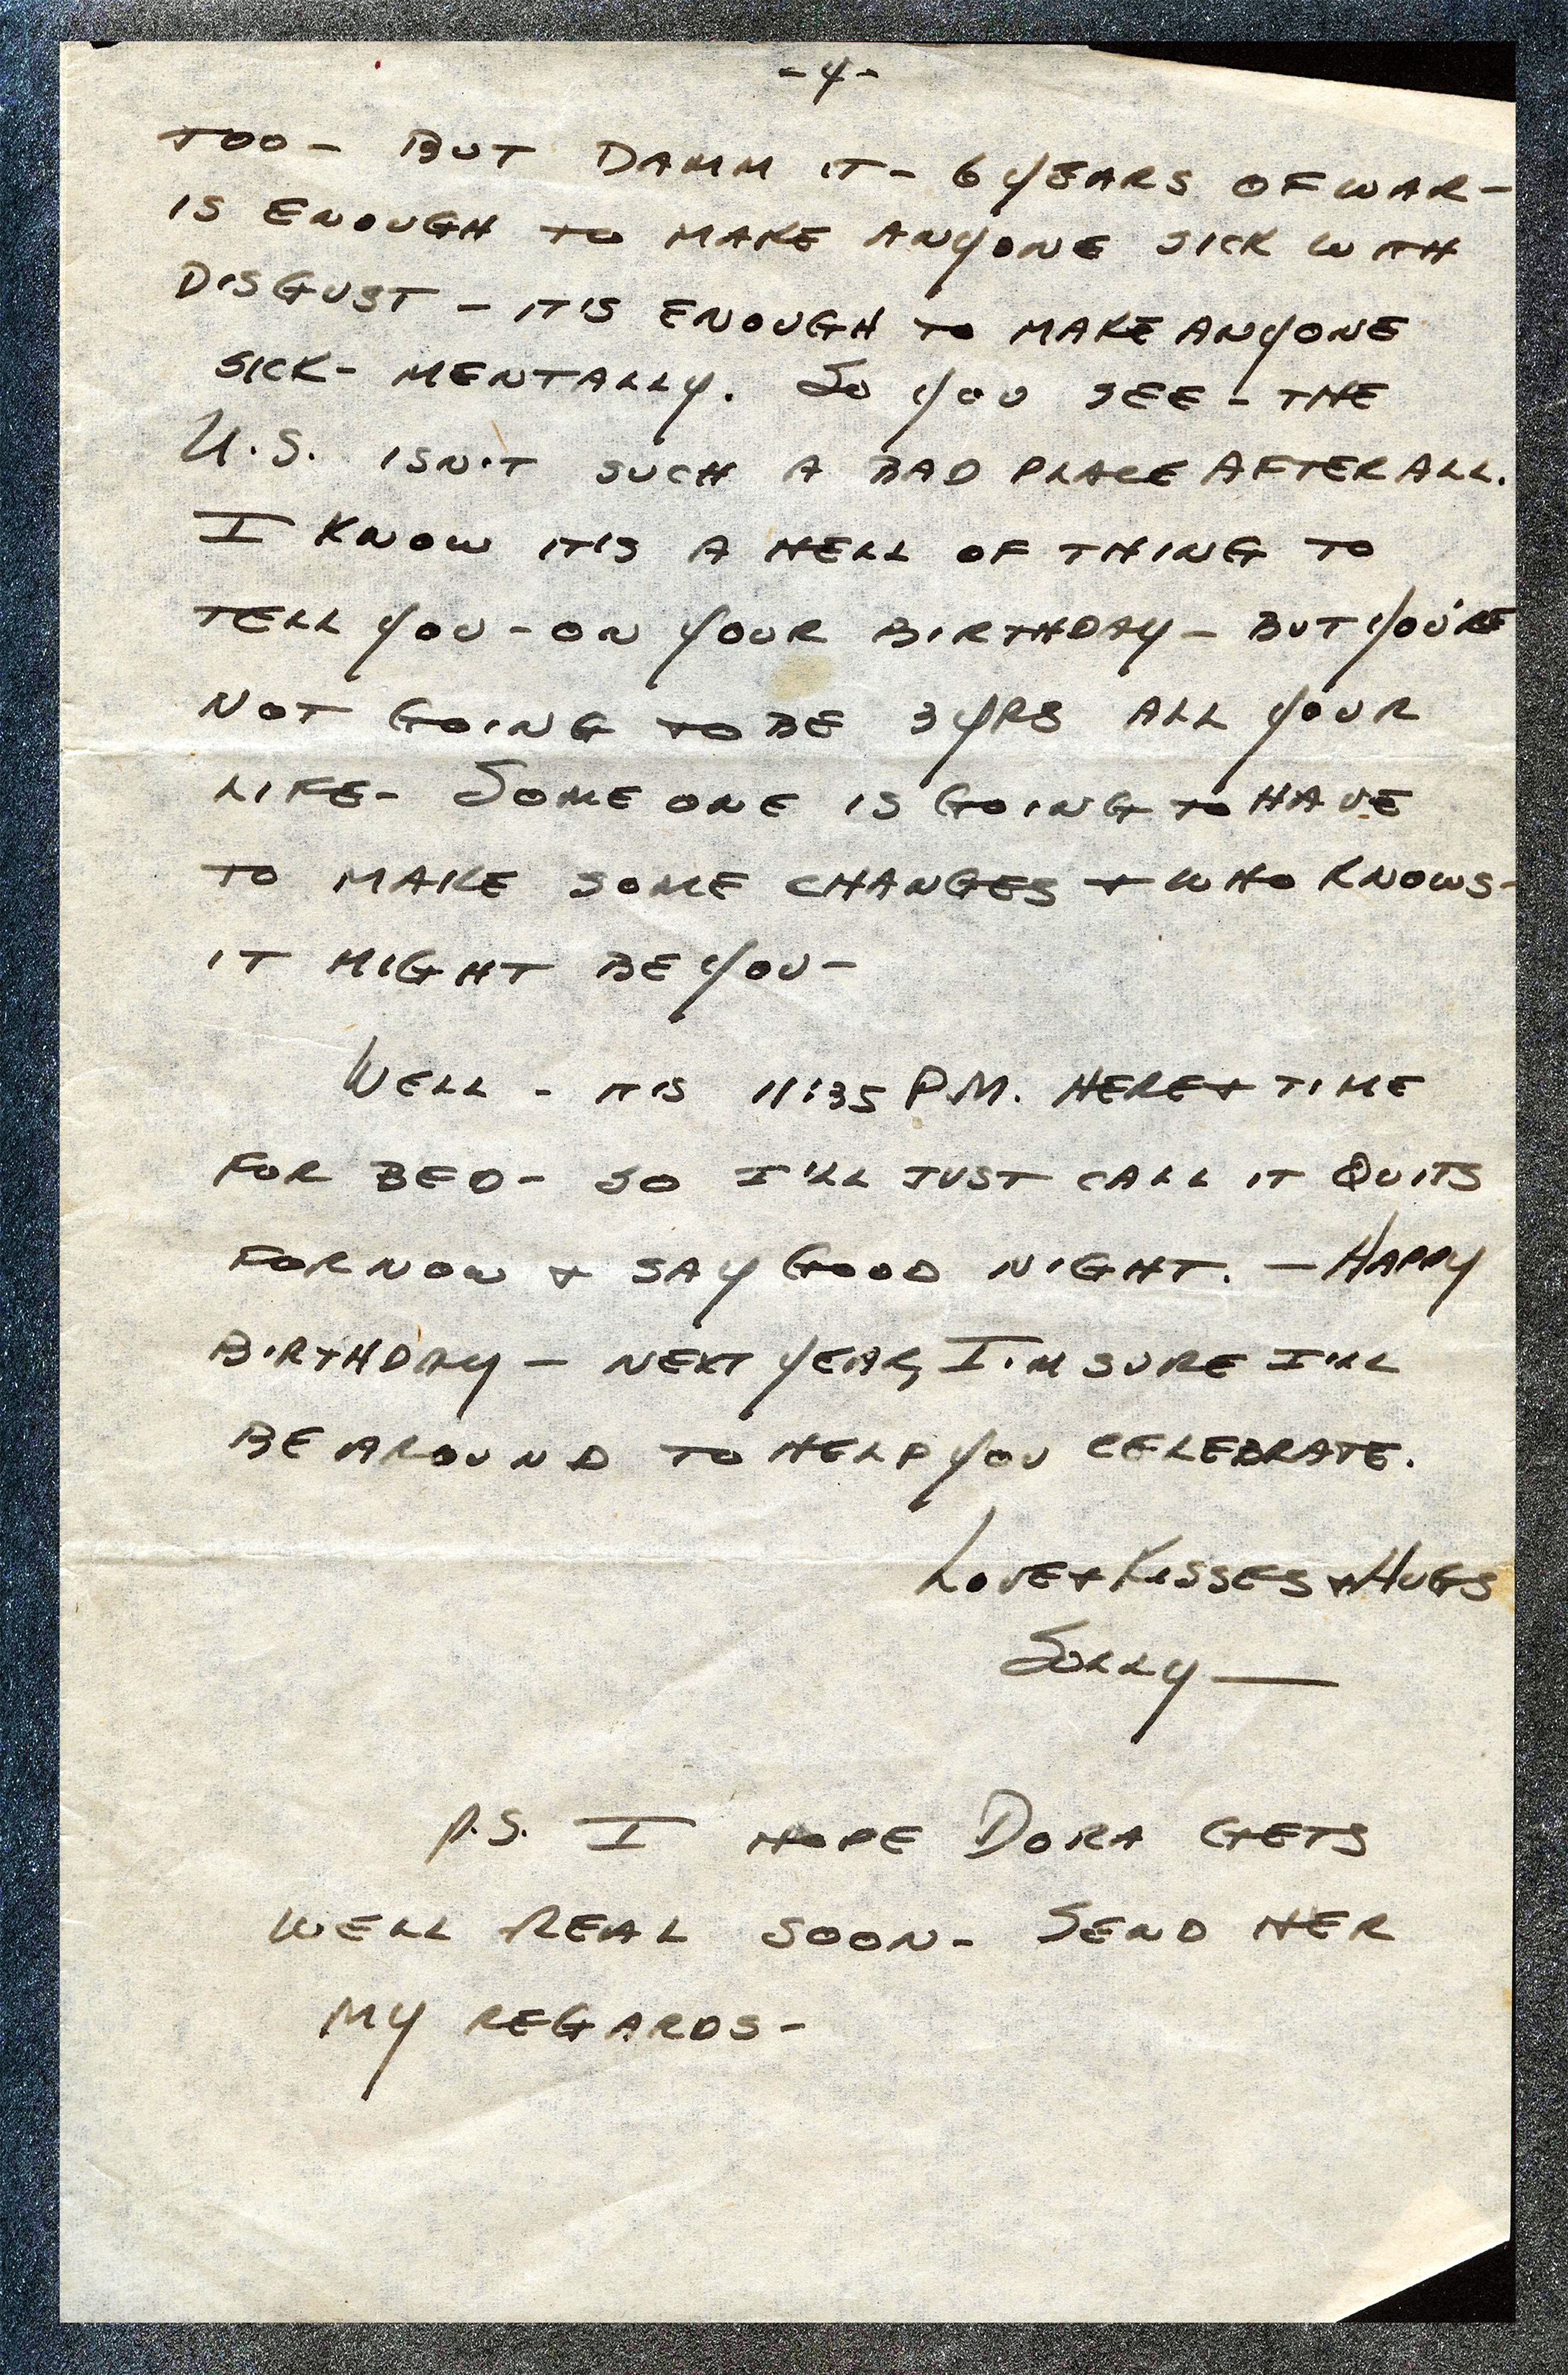 -4-
TOO - BUT DAMM IT - 6 YEARS OF WAR -
IS ENOUGH TO MAKE ANYONE SICK WITH
DISGUST - IT'S ENOUGH TO MAKE ANYONE
SICK - MENTALLY. So YOU SEE - THE
U.S. ISN'T SUCH A BAD PLACE AFTER ALL.
I KNOW IT'S A HELL OF THING TO
TELL YOU - ON YOUR BIRTHDAY - BUT YOU'RE
NOT GOING TO BE 3 YRS ALL YOUR
LIFE - SOME ONE IS GOING TO HAVE
TO MAKE SOME CHANGES + WHO KNOWS -
IT MIGHT BE YOU -
WELL - IT'S 11:35 P.M. HERE + TIME
FOR BED - SO I'LL JUST CALL IT QUITS
FOR NOW + SAY GOOD NIGHT. - HAPPY
BIRTHDAY - NEXT YEAR, I'M SURE I'LL
BE AROUND TO HELP YOU CELEBRATE.
LOVE + KISSES + HUGS
SOLLY —
P.S. I HOPE DORA GETS
WELL REAL SOON - SEND HER
MY REGARDS -